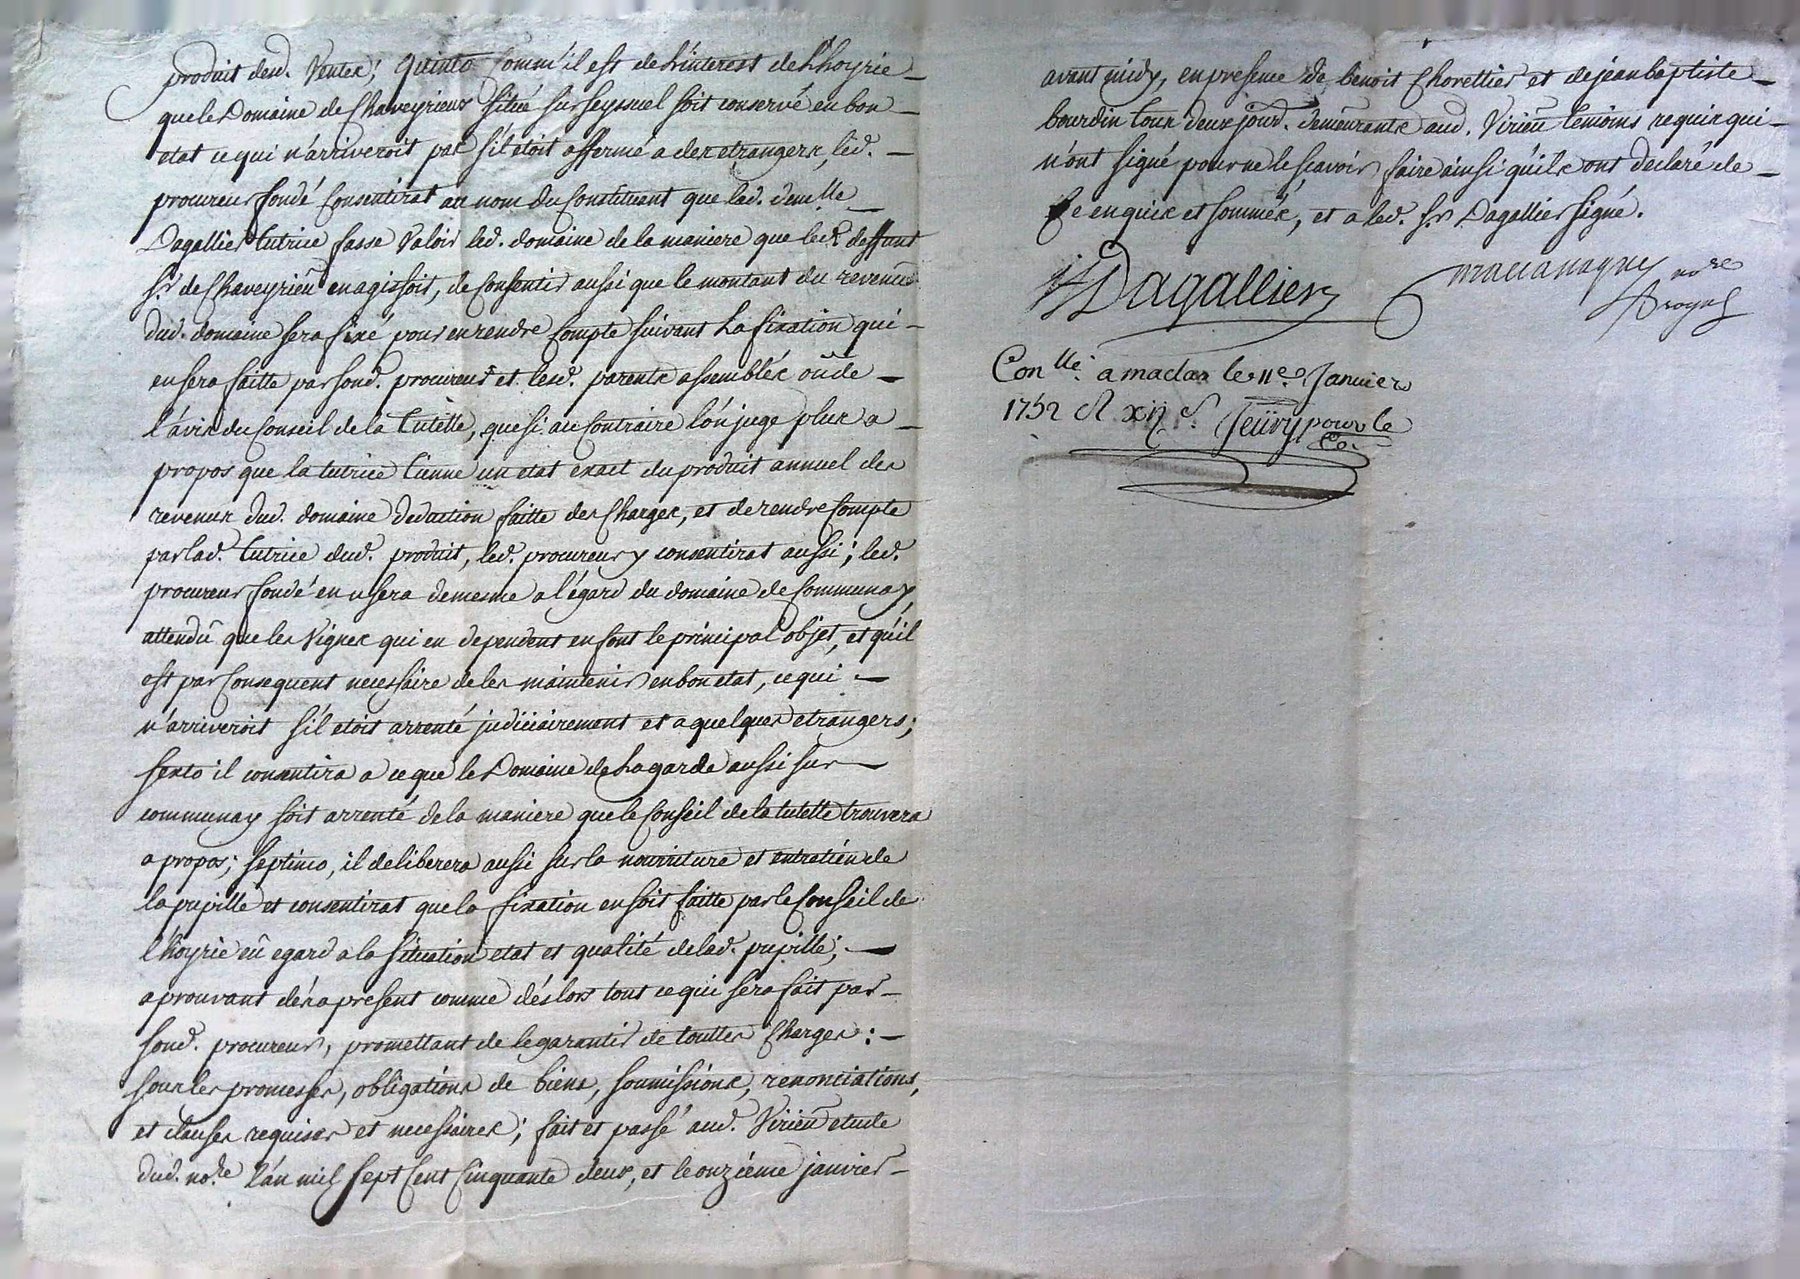 produit desd. Ventes; Quinto Comm'il est de L'interest de L'hoyrie
que le Domaine de Chaveyrieux Situé sur Seyssuel soit conservé en bon
etat ce qui n'arriveroit pas s'il étoit affermé a des etrangers, led.
procureur fondé Consentirat au nom du Constituant que lad. demlle
Dagallier tutrice fasse Valoir led. domaine de la maniere que led. deffunt
Sr de Chaveyrieu en agissoit, de Consentir aussi que le montant du revenu
dud. domaine sera fixé pour en rendre Compte suivant La fixation qui
en sera faitte par sond. procureur et lesd. parents assemblés où de
l'avis du Conseil de la Tutelle, que si au Contraire l'on juge plus a
propos que la tutrice tienne un etat exact du produit annuel des
revenus dud. domaine deduction faitte des Charges, et de rendre Compte
par lad. tutrice dud. produit, led. procureur y consentirat aussi; led.
procureur fondé en usera de mesme a l'égard du domaine de Communay
attendu que les Vignes qui en dependent en font le principal objet, et qu'il
est par Consequent necessaire de les maintenir en bon etat, ce qui
n'arriveroit s'il etoit arrenté judiciairement et a quelques etrangers;
sexto il consentira a ce que le Domaine de Lagarde aussi sur
communay soit arrenté de la maniere que le Conseil de la tutelle trouvera
a propos; septimo, il deliberera aussi sur la nourriture et entretien de
la pupille et consentirat que la fixation en soit faitte par le Conseil de
l'hoyrie eû egard a la situation etat et qualité de lad. pupille;
aprouvant dés a present comme dés lors tout ce qui sera fait par
sond. procureur, promettant de le garantir de touttes Charges:
sous les promesses, obligations de biens, soumissions, renonciations,
et clauses requises et necessaires; fait et passé aud. Virieu etude
dud. nore. l'an mil sept Cent Cinquante deux, et le onzième janvier
avant midy, en presence de benoit Chorettier et de jean baptiste
bourdin tous deux jourd. demeurants aud. Virieu temoins requis qui
n'ont signé pour ne le sçavoir faire ainsi qu'ils ont declaré de
ce enquis et sommés, et a led. Sr Dagallier signé.
Dagallier nore
Conlle. a maclas le 11e Janvier
1752 R xij s. pour le
Co.